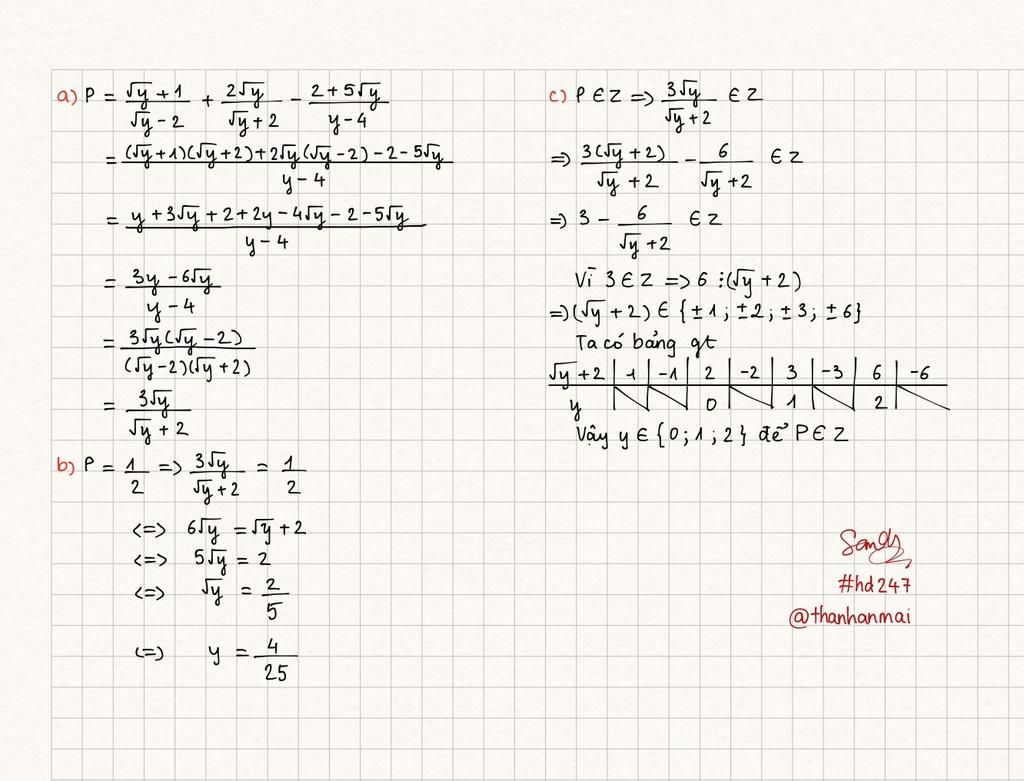 a) P = (√y + 1)/(√y − 2) + 2√y/(√y + 2) − (2 + 5√y)/(y − 4)
= ((√y + 1)(√y + 2) + 2√y(√y − 2) − 2 − 5√y)/(y − 4)
= (y + 3√y + 2 + 2y − 4√y − 2 − 5√y)/(y − 4)
= (3y − 6√y)/(y − 4)
= (3√y(√y − 2))/((√y − 2)(√y + 2))
= 3√y/(√y + 2)
b) P = 1/2 => 3√y/(√y + 2) = 1/2
<=> 6√y = √y + 2
<=> 5√y = 2
<=> √y = 2/5
<=> y = 4/25
c) P ∈ Z => 3√y/(√y + 2) ∈ Z
=> 3(√y + 2)/(√y + 2) − 6/(√y + 2) ∈ Z
=> 3 − 6/(√y + 2) ∈ Z
Vì 3 ∈ Z => 6 ⋮ (√y + 2)
=> (√y + 2) ∈ {±1; ±2; ±3; ±6}
Ta có bảng gt
√y + 2 | 1 | −1 | 2 | −2 | 3 | −3 | 6 | −6
y | | | 0 | | 1 | | 2 |
Vậy y ∈ {0; 1; 2} để P ∈ Z
Sandy
#hd247
@thanhanmai